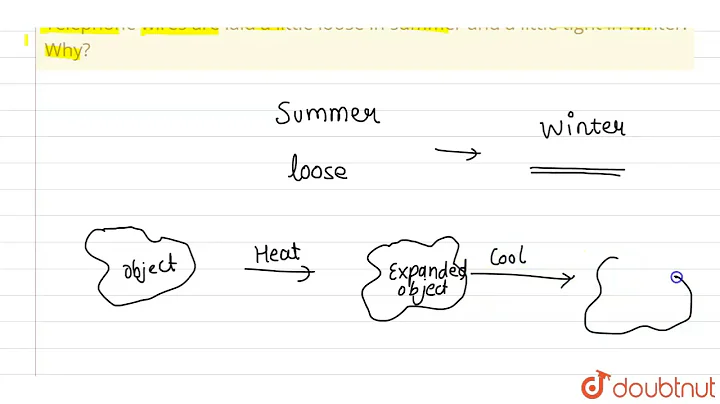 Telephone wires are laid a little loose in summer and a little tight in winter.
Why?
Summer
Winter
loose
object
Heat
Expanded
object
Cool
doubtnut